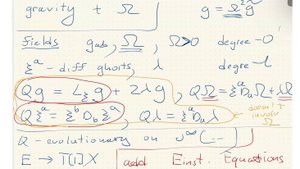 gravity + Ω g = Ω² g̃
fields g_ab, Ω, Ω>0 degree-0
ξ^a - diff ghosts, λ degree-1
Qg = L_ξ g + 2λg, QΩ = ξ^a D_a Ω + λΩ
Qξ^a = ξ^b D_b ξ^a Qλ = ξ^a D_a λ doesn't involve Ω
Q - evolutionary on J^∞(
E → T[1]X add Einst. Equations